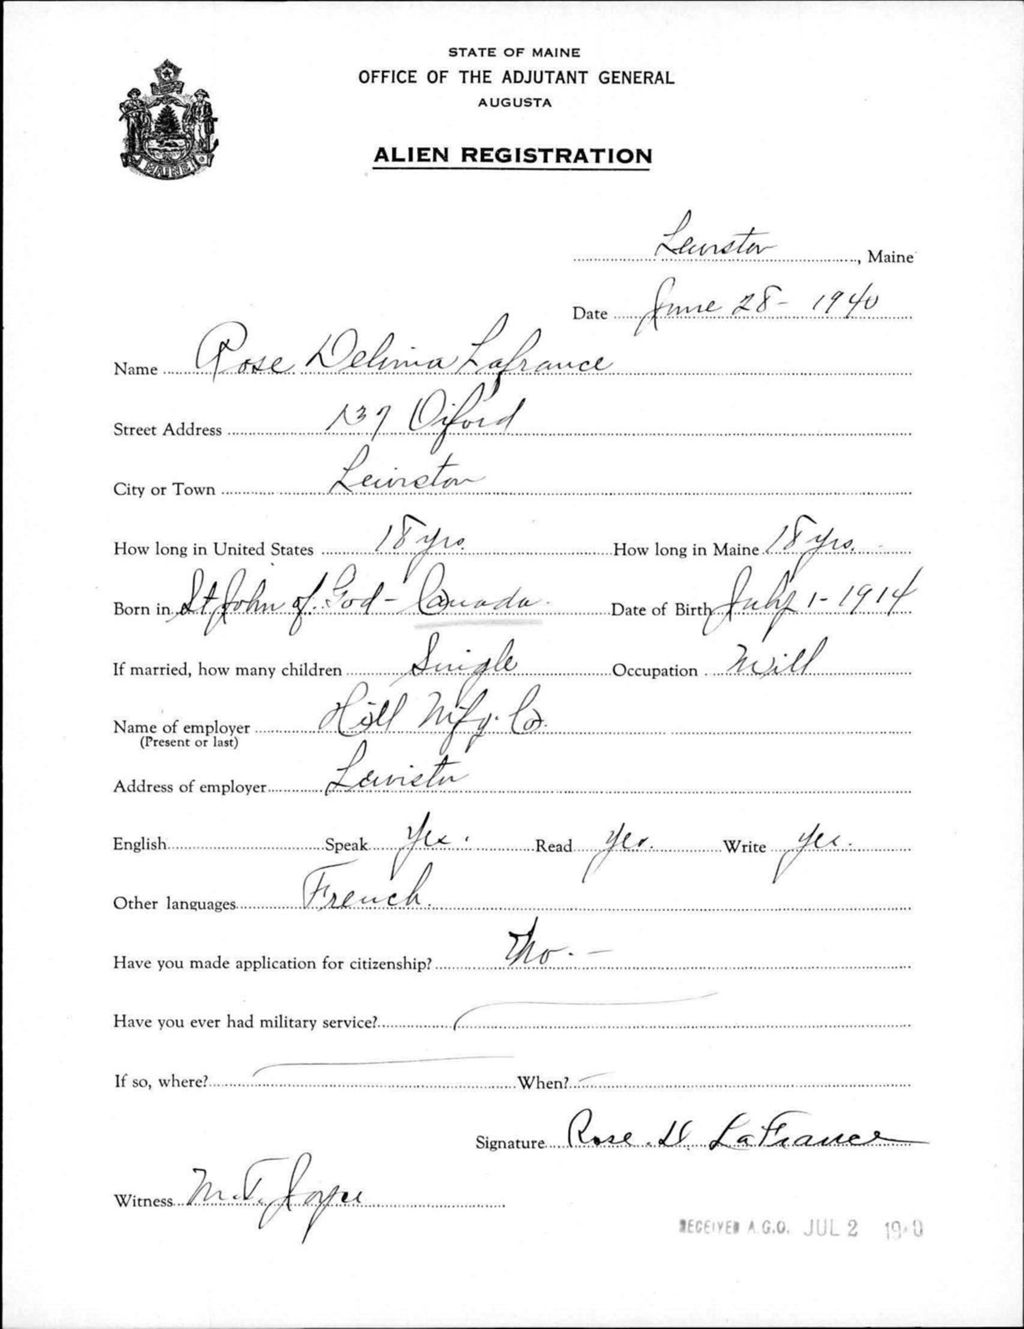 STATE OF MAINE
OFFICE OF THE ADJUTANT GENERAL
AUGUSTA
ALIEN REGISTRATION
MAINE
Lewiston, Maine
Date June 28 - 1940
Name Rose Delima Lafrance
Street Address 137 Oxford
City or Town Lewiston
How long in United States 18 yrs. How long in Maine 18 yrs.
Born in St John of God - Canada Date of Birth July 1 - 1914
If married, how many children Single Occupation Mill
Name of employer Hill Mfg. Co.
(Present or last)
Address of employer Lewiston
English Speak Yes. Read Yes. Write Yes.
Other languages French.
Have you made application for citizenship? No. -
Have you ever had military service?
If so, where? When?
Signature Rose D LaFrance
Witness M. T. Joyce
RECEIVED A.G.O. JUL 2 1940